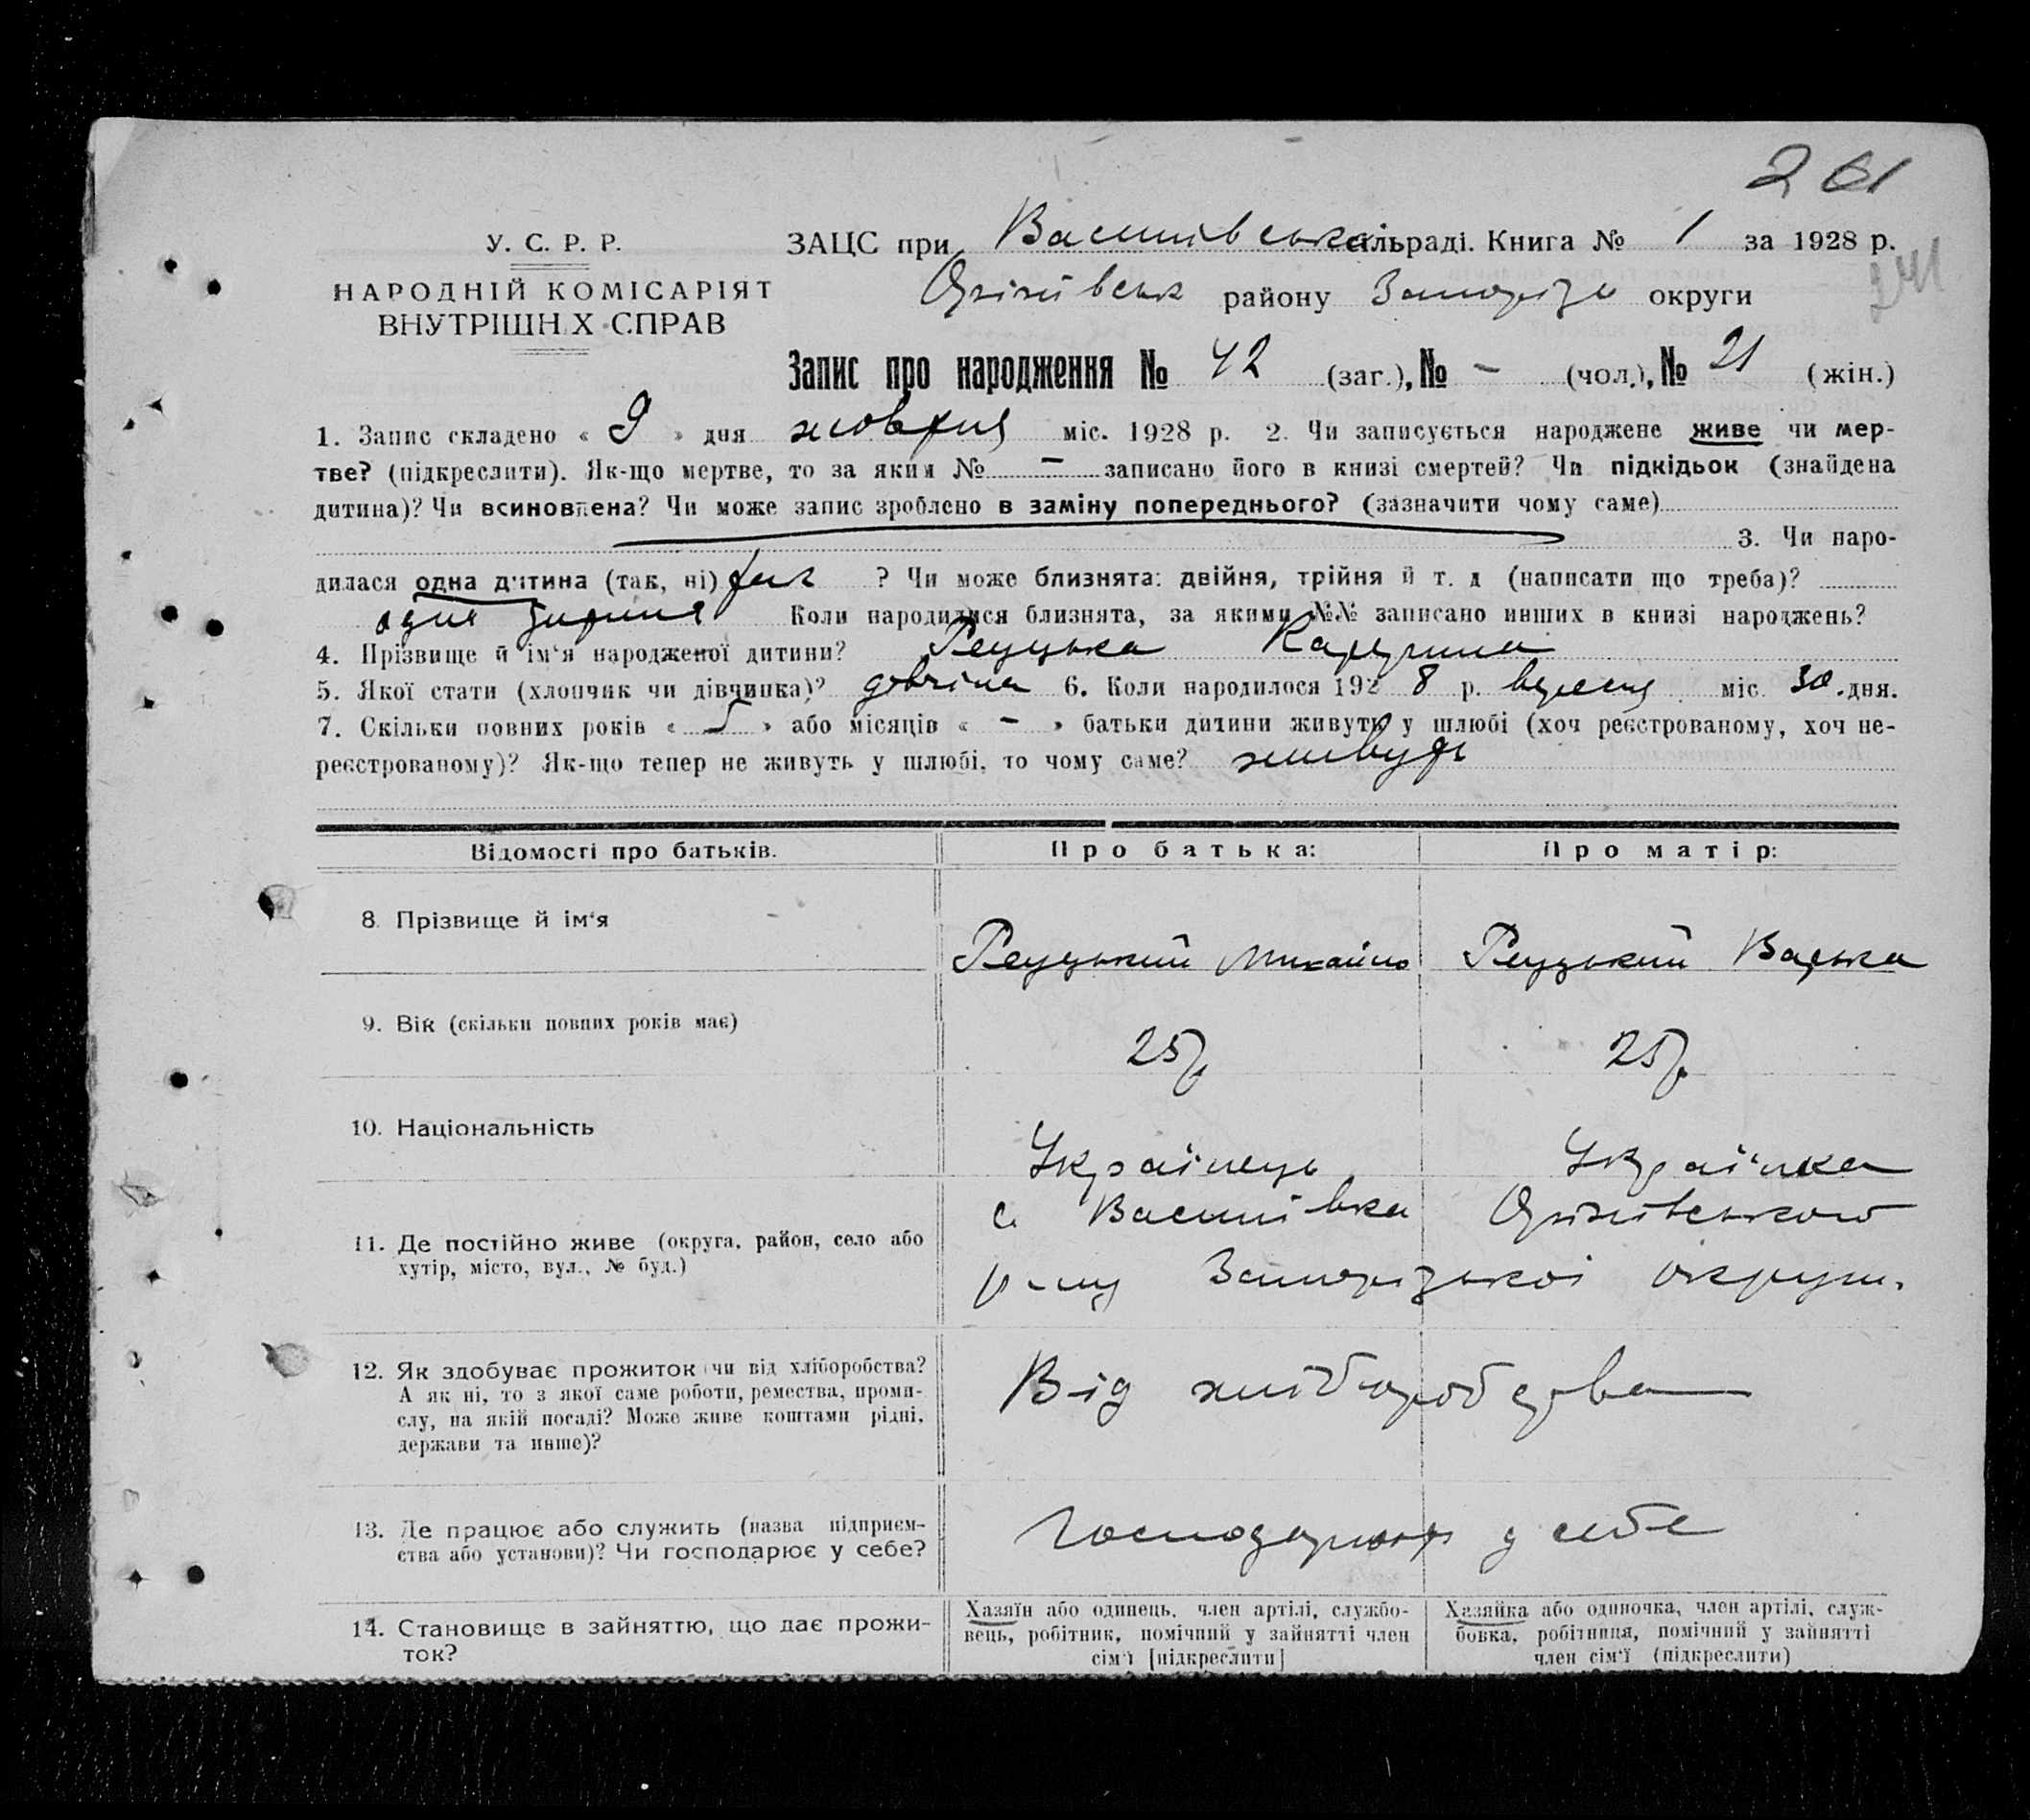 261
У. С. Р. Р.
НАРОДНІЙ КОМІСАРІЯТ
ВНУТРІШНІХ СПРАВ
ЗАЦС при Василівській сільраді. Книга № 1 за 1928 р.
241
Оріхівськ району Запоріз округи
Запис про народження № 42 (заг.), № - (чол.), № 21 (жін.)
1. Запис складено « 9 » дня жовтня міс. 1928 р. 2. Чи записується народжене живе чи мер-
тве? (підкреслити). Як-що мертве, то за яким № - записано його в книзі смертей? Чи підкідьок (знайдена
дитина)? Чи всиновлена? Чи може запис зроблено в заміну попереднього? (зазначити чому саме)
3. Чи наро-
дилася одна дитина (так, ні) так ? Чи може близнята: двійня, трійня й т. д (написати що треба)?
одна дитина Коли народилися близнята, за якими №№ записано инших в книзі народжень?
4. Прізвище й ім‘я народженої дитини? Рецуька Катерина
5. Якої стати (хлопчик чи дівчинка)? дівчина 6. Коли народилося 192 8 р. вересня міс. 30 дня.
7. Скільки повних років « 5 » або місяців « - » батьки дитини живуть у шлюбі (хоч реєстрованому, хоч не-
реєстрованому)? Як-що тепер не живуть у шлюбі, то чому саме? живуть
Відомості про батьків. Про батька: Про матір:
8. Прізвище й ім‘я Рецуький Михайло Рецуький Варька
9. Вік (скільки повних років має) 25 р. 25 р.
10. Національність Українець Українка
11. Де постійно живе (округа, район, село або
хутір, місто, вул., № буд.)
с. Василівка Оріхівського
р-ну Запорізької округи.
12. Як здобуває прожиток (чи від хліборобства?
А як ні, то з якої саме роботи, ремества, проми-
слу, на якій посаді? Може живе коштами рідні,
держави та инше)?
Від хліборобства
13. Де працює або служить (назва підприєм-
ства або установи)? Чи господарює у себе?
Господарюють у себе
14. Становище в зайняттю, що дає прожи-
ток?
Хазяїн або одинець, член артілі, службо-
вець, робітник, помічний у зайнятті член
сім‘ї [підкреслити]
Хазяйка або одиночка, член артілі, служ-
бовка, робітниця, помічний у зайнятті
член сім‘ї (підкреслити)